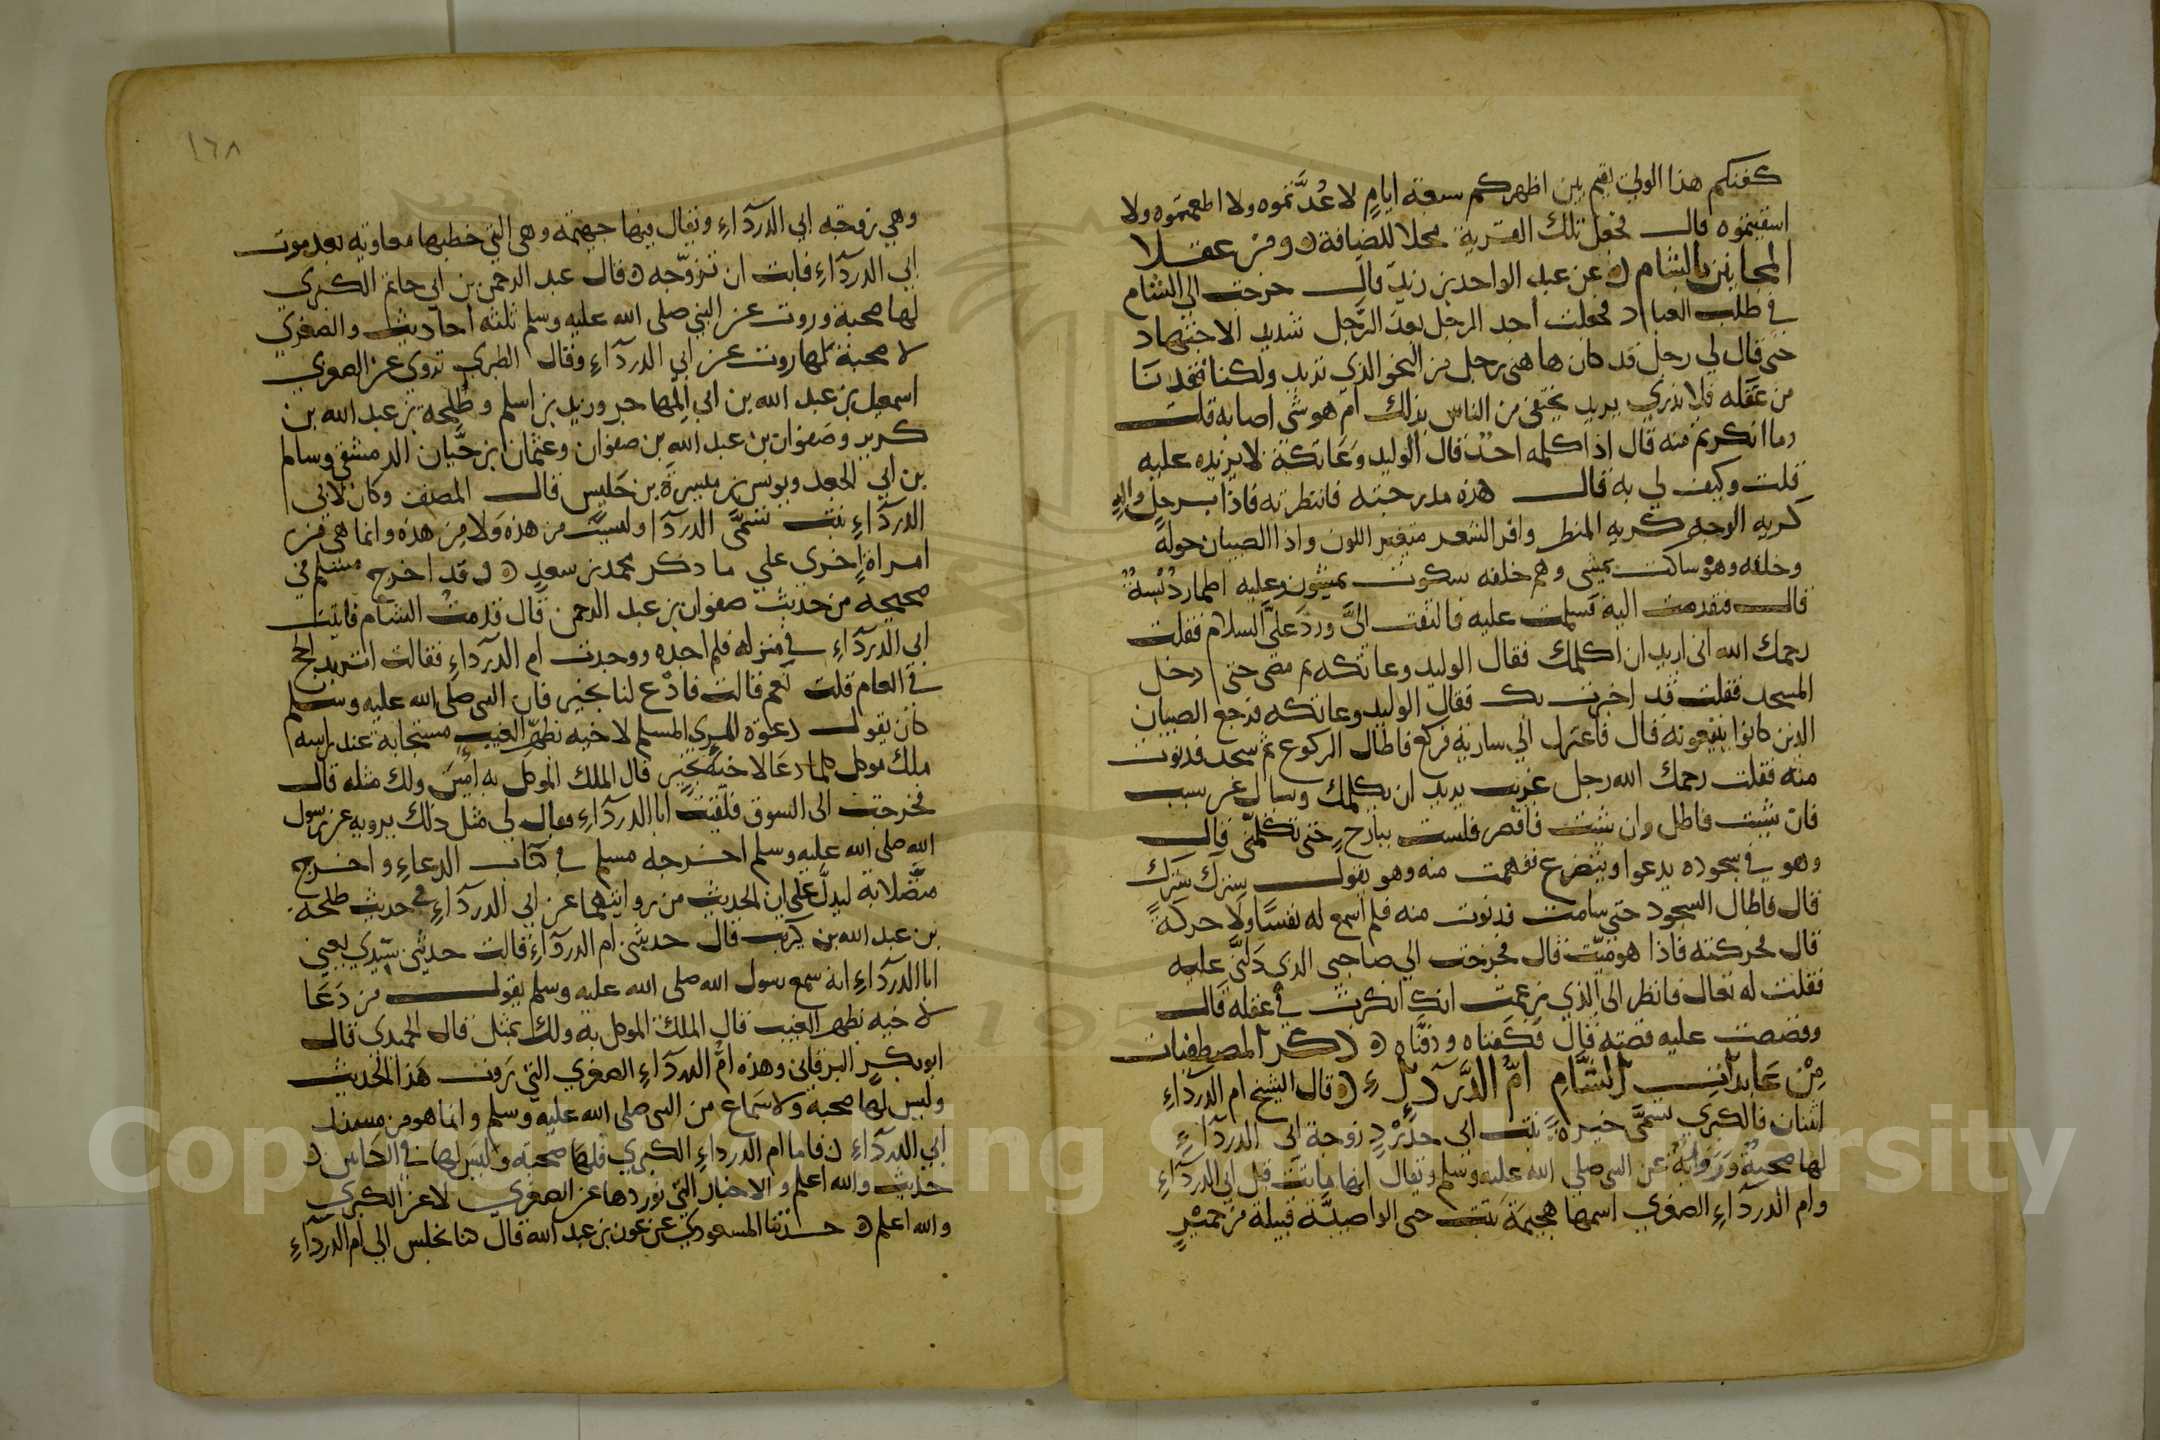 كفنكم هذا الولي يقيم بين اظهركم سبعة ايام لا عدتموه ولا اطعمتموه ولا
اسقيتموه قال فجعل تلك القرية محلا للضيافة ومن عقلا
المجانين بالشام عن عبد الواحد بن زيد قال خرجت الى الشام
في طلب العباد فجعلت أجد الرجل بعد الرجل شديد الاجتهاد
حتى قال لي رجل قد كان هاهنى رجل من النحو الذي تريد ولكنا فقدنا
من عقله فلا ندري يريد يختفي من الناس بذلك ام هو شي اصابه قلت
وما انكرتم منه قال اذا كلمه احد قال الوليد وعاتكة لا يزيده عليه
قلت وكيف لي به قال هذه مدرجته فانتظرته فاذا برجل واله
كريه الوجه كريه المنظر وافر الشعر متغير اللون واذا الصبيان حوله
وخلفه وهو ساكت يمشي وهم خلفه سكوت يمشون وعليه اطمار دنسة
قال فتقدمت اليه فسلمت عليه فالتفت الي ورد علي السلام فقلت
رحمك الله اني اريد ان اكلمك فقال الوليد وعاتكه ثم مضى حتى دخل
المسجد فقلت قد اخبرت بك فقال الوليد وعاتكه فرجع الصبيان
الذين كانوا يتبعونه قال فاعتزل الي سارية فركع فاطال الركوع ثم سجد فدنوت
منه فقلت رحمك الله رجل غريب يريد ان يكلمك ويسال عن سبب
فان شيت فاطل وان شيت فاقصر فلست ببارح حتى تكلمني قال
وهو في سجوده يدعوا ويتضرع ففهمت منه وهو يقول سترك سترك
قال فاطال السجود حتى سامت فدنوت منه فلم اسمع له نفسا ولا حركة
قال فحركته فاذا هو ميت قال فخرجت الي صاحبي الذي دلني عليه
فقلت له تعال فانظر الى الذي زعمت انك انكرت في عقله قال
وقصصت عليه قصته قال فكفناه ودفناه ذكر المصطفيات
من عابدات الشام ام الدرداء قال الشيخ ام الدرداء
اثنتان فالكبرى تسمى خيرة بنت ابي حدرد زوجة ابي الدرداء
لها صحبة ورواية عن النبي صلى الله عليه وسلم ويقال انها ماتت قبل ابي الدرداء
وام الدرداء الصغرى اسمها هجيمة بنت حي الواصبية قبيلة من حمير
١٦٨
وهي زوجة ابي الدرداء ويقال فيها جهيمة وهى التي خطبها معاوية بعد موت
ابي الدرداء فابت ان تزوجه قال عبد الرحمن بن ابي حاتم الكبرى
لها صحبة وروت عن النبي صلى الله عليه وسلم ثلثة احاديث والصغري
لا صحبة لها روت عن ابي الدرداء وقال الطبري تروى عن الصغرى
اسمعيل بن عبد الله بن ابي المهاجر وزيد بن اسلم وطلحة بن عبد الله بن
كريز وصفوان بن عبد الله بن صفوان وعثمان بن حيان الدمشقي وسالم
بن ابي الجعد ويونس بن ميسرة بن حلبس قال المصنف وكان لابي
الدرداء بنت تسمى الدردا وليست من هذه ولا من هذه وانما هي من
امراة اخرى علي ما ذكر محمد بن سعد قد اخرج مسلم في
صحيحه من حديث صفوان بن عبد الرحمن قال قدمت الشام فاتيت
ابي الدرداء في منزله فلم اجده ووجدت ام الدرداء فقالت اتريد الحج
في العام قلت نعم قالت فادع لنا بخير فان النبي صلى الله عليه وسلم
كان يقول دعوة المري المسلم لاخيه بظهر الغيب مستجابة عند راسه
ملك موكل كلما دعا لاخيه بخير قال الملك الموكل به امين ولك مثله قال
فخرجت الى السوق فلقيت ابا الدرداء فقال لي مثل ذلك يرويه عن رسول
الله صلى الله عليه وسلم اخرجه مسلم في كتاب الدعاء واخرج
متصلا به ليدل على ان الحديث من روايتهما عن ابي الدرداء في حديث طلحة
بن عبد الله بن كريب قال حدثتني ام الدرداء قالت حدثني سيدي يعني
ابا الدرداء انه سمع رسول الله صلى الله عليه وسلم يقول من دعا
لاخيه بظهر الغيب قال الملك الموكل به ولك بمثل قال الحميدي قال
ابو بكر البرقاني وهذه ام الدرداء الصغرى التي روت هذا الحديث
وليس لها صحبة ولا سماع من النبي صلى الله عليه وسلم وانما هو من مسند
ابي الدرداء فاما ام الدرداء الكبرى فلها صحبة وليس لها في الكتابين
حديث والله اعلم والاخبار التي نوردها عن الصغرى لا عن الكبرى
والله اعلم حدثنا المسعودي عن عون بن عبد الله قال كنا نجلس الي ام الدرداء
Copyright © King Saud University
195